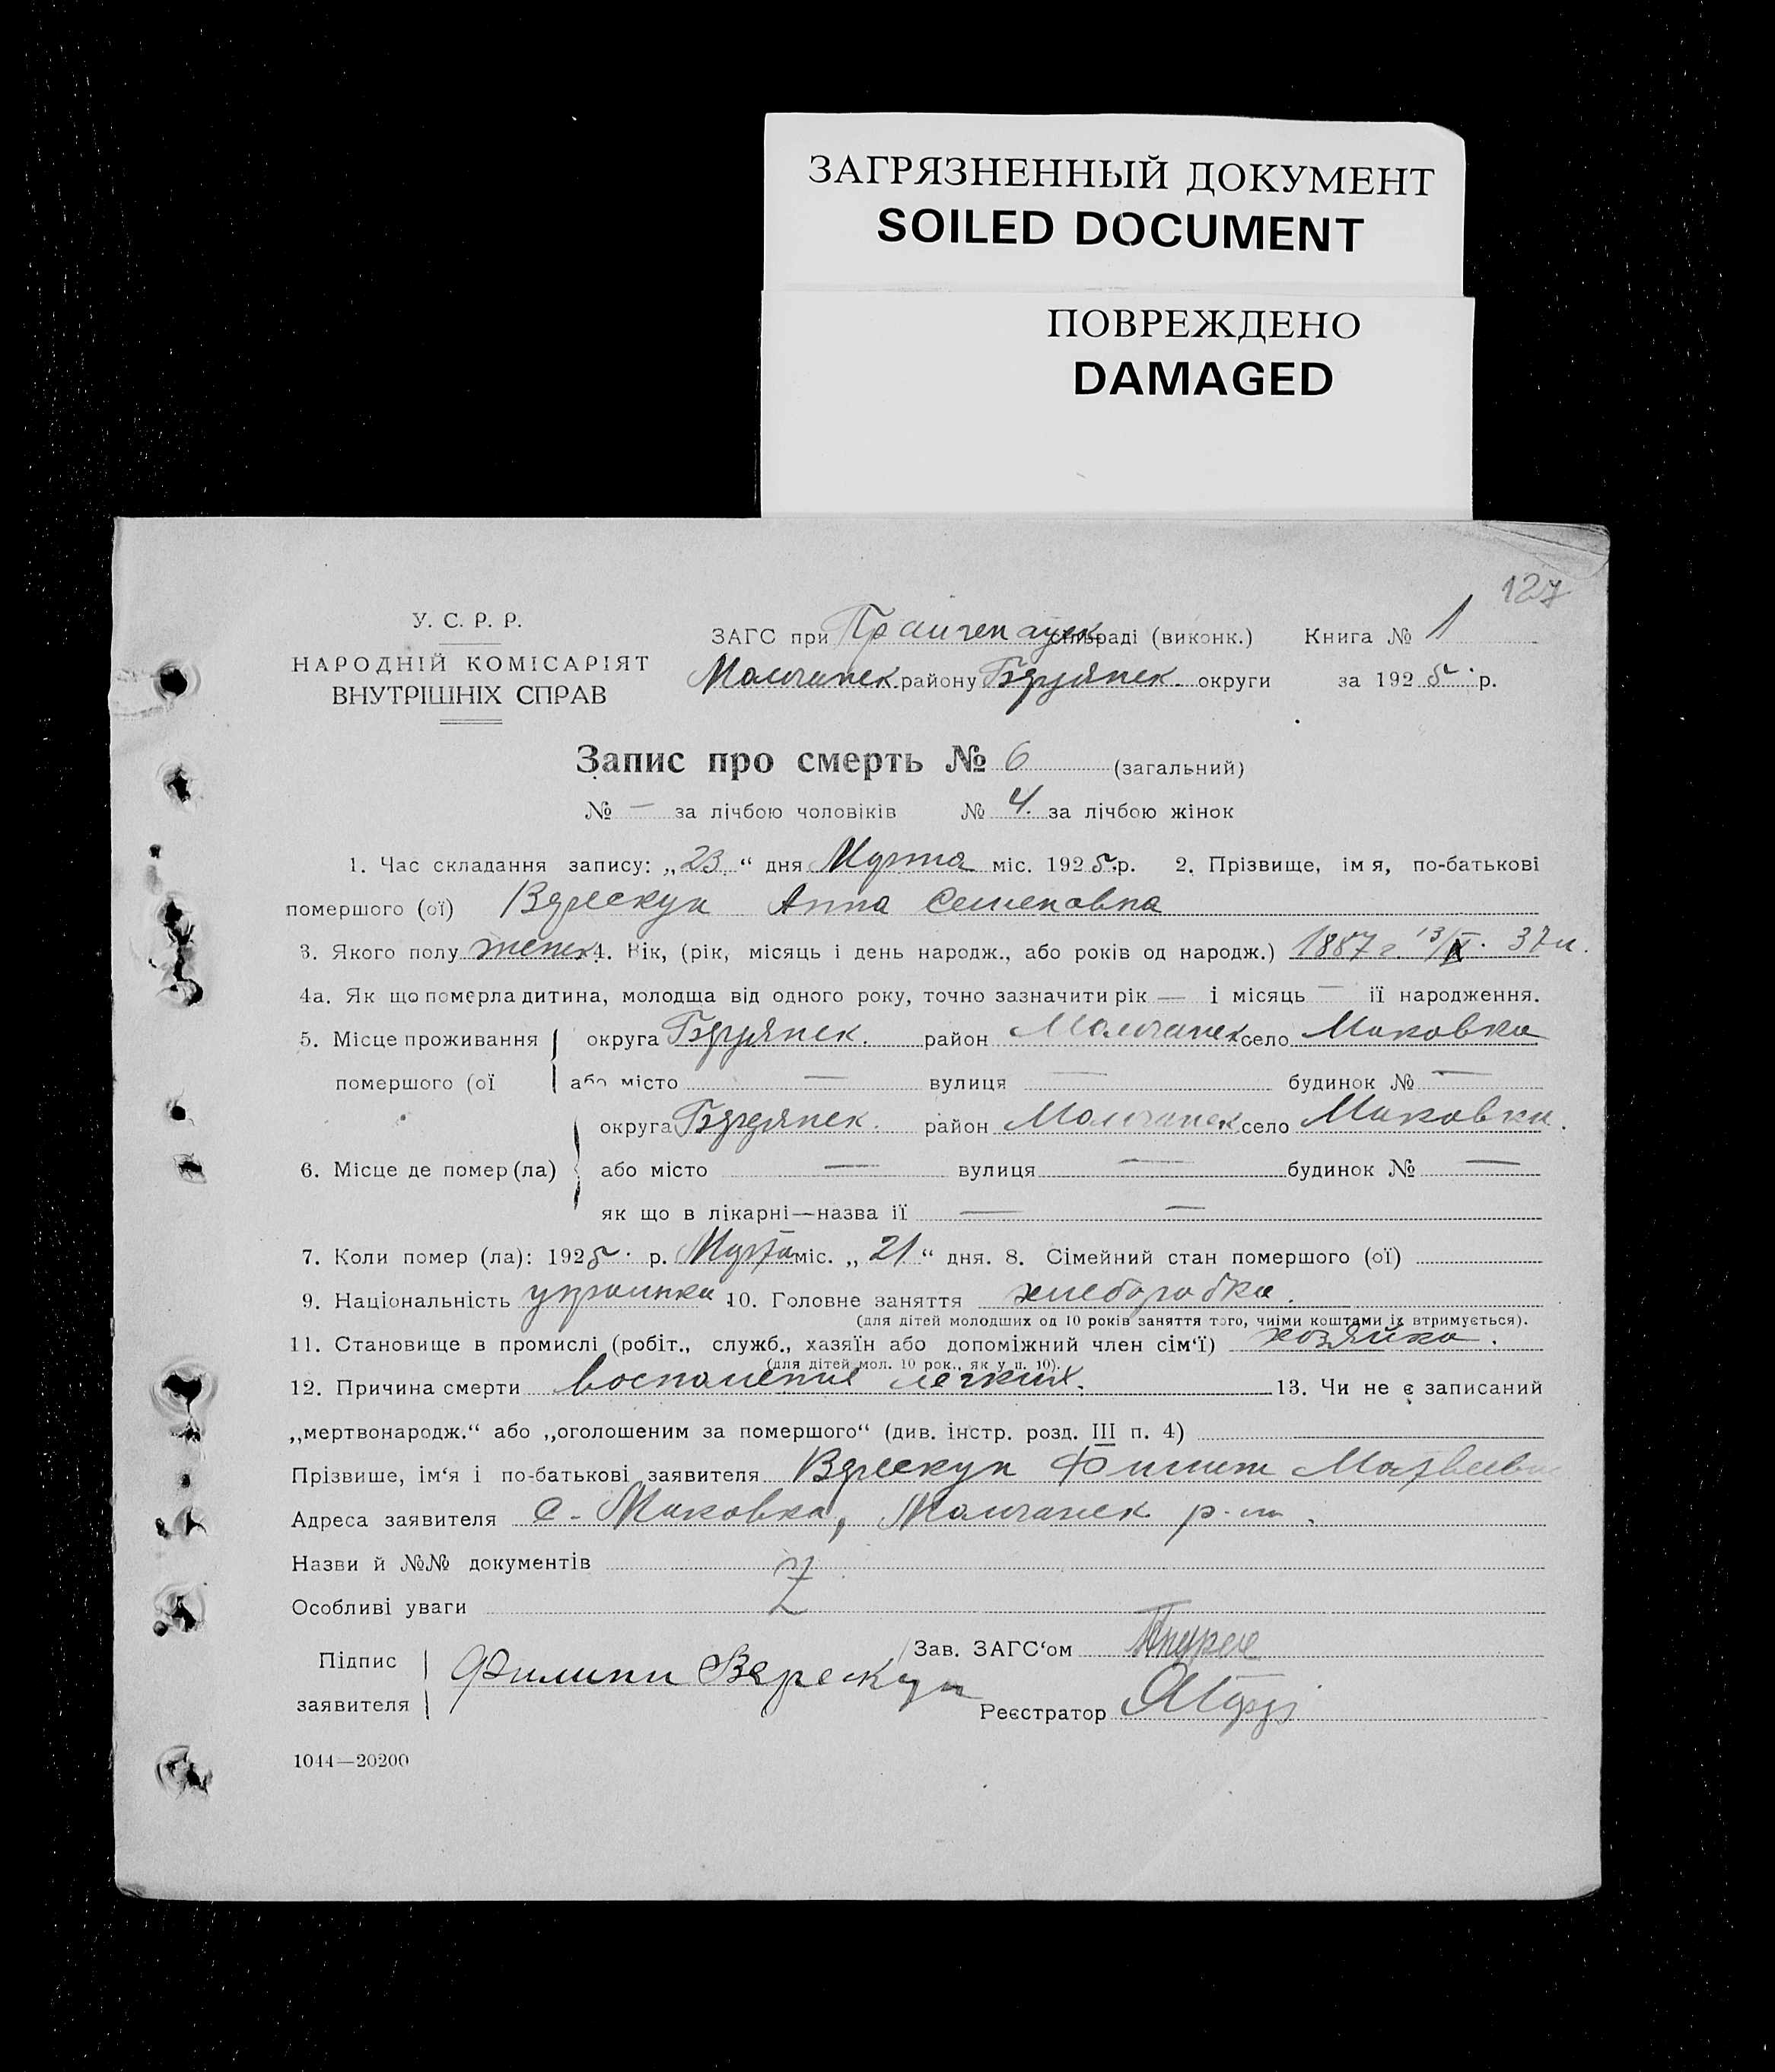 ЗАГРЯЗНЕННЫЙ ДОКУМЕНТ
SOILED DOCUMENT
ПОВРЕЖДЕНО
DAMAGED
127
У. С. Р. Р.
НАРОДНІЙ КОМІСАРІЯТ
ВНУТРІШНІХ СПРАВ
ЗАГС при сільраді (виконк.) Книга № 1
Молочанск. району Бердянск. округи за 1925 р.
Запис про смерть № 6 (загальний)
№ — за лічбою чоловіків № 4. за лічбою жінок
1. Час складання запису: „23“ дня Марта міс. 1925 р. 2. Прізвище, імя, по-батькові
помершого (ої) Верескун Анна Семеновна
3. Якого полу женск 4. Вік, (рік, місяць і день народж., або років од народж.) 1887 г. 13/X. 37 л.
4а. Як що померла дитина, молодща від одного року, точно зазначити рік — і місяць — ії народження.
5. Місце проживання округа Бердянск. район Молочанск село Маковка
помершого (ої або місто — вулиця — будинок № —
округа Бердянск. район Молочанск село Маковка.
6. Місце де помер (ла) або місто — вулиця — будинок № —
як що в лікарні—назва ії — —
7. Коли помер (ла): 1925 р. Марта міс. „21“ дня. 8. Сімейний стан помершого (ої)
9. Національність украинка 10. Головне заняття хлеборобка.
(для дітей молодших од 10 років заняття того, чиїми коштами їх втримується).
11. Становище в промислі (робіт., служб., хазяїн або допоміжний член сім‘ї) хозяйка.
(для дітей мол. 10 рок., як у п. 10).
12. Причина смерти воспаление легких. 13. Чи не є записаний
„мертвонародж.“ або „оголошеним за помершого“ (див. інстр. розд. III п. 4)
Прізвише, ім‘я і по-батькові заявителя Верескун Филипп Матвеевич
Адреса заявителя с. Маковка, Молочанск р-на.
Назви й №№ документів
Особливі уваги
Зав. ЗАГС‘ом
Підпис
заявителя Филипп Верескун
Реєстратор
1044—20200